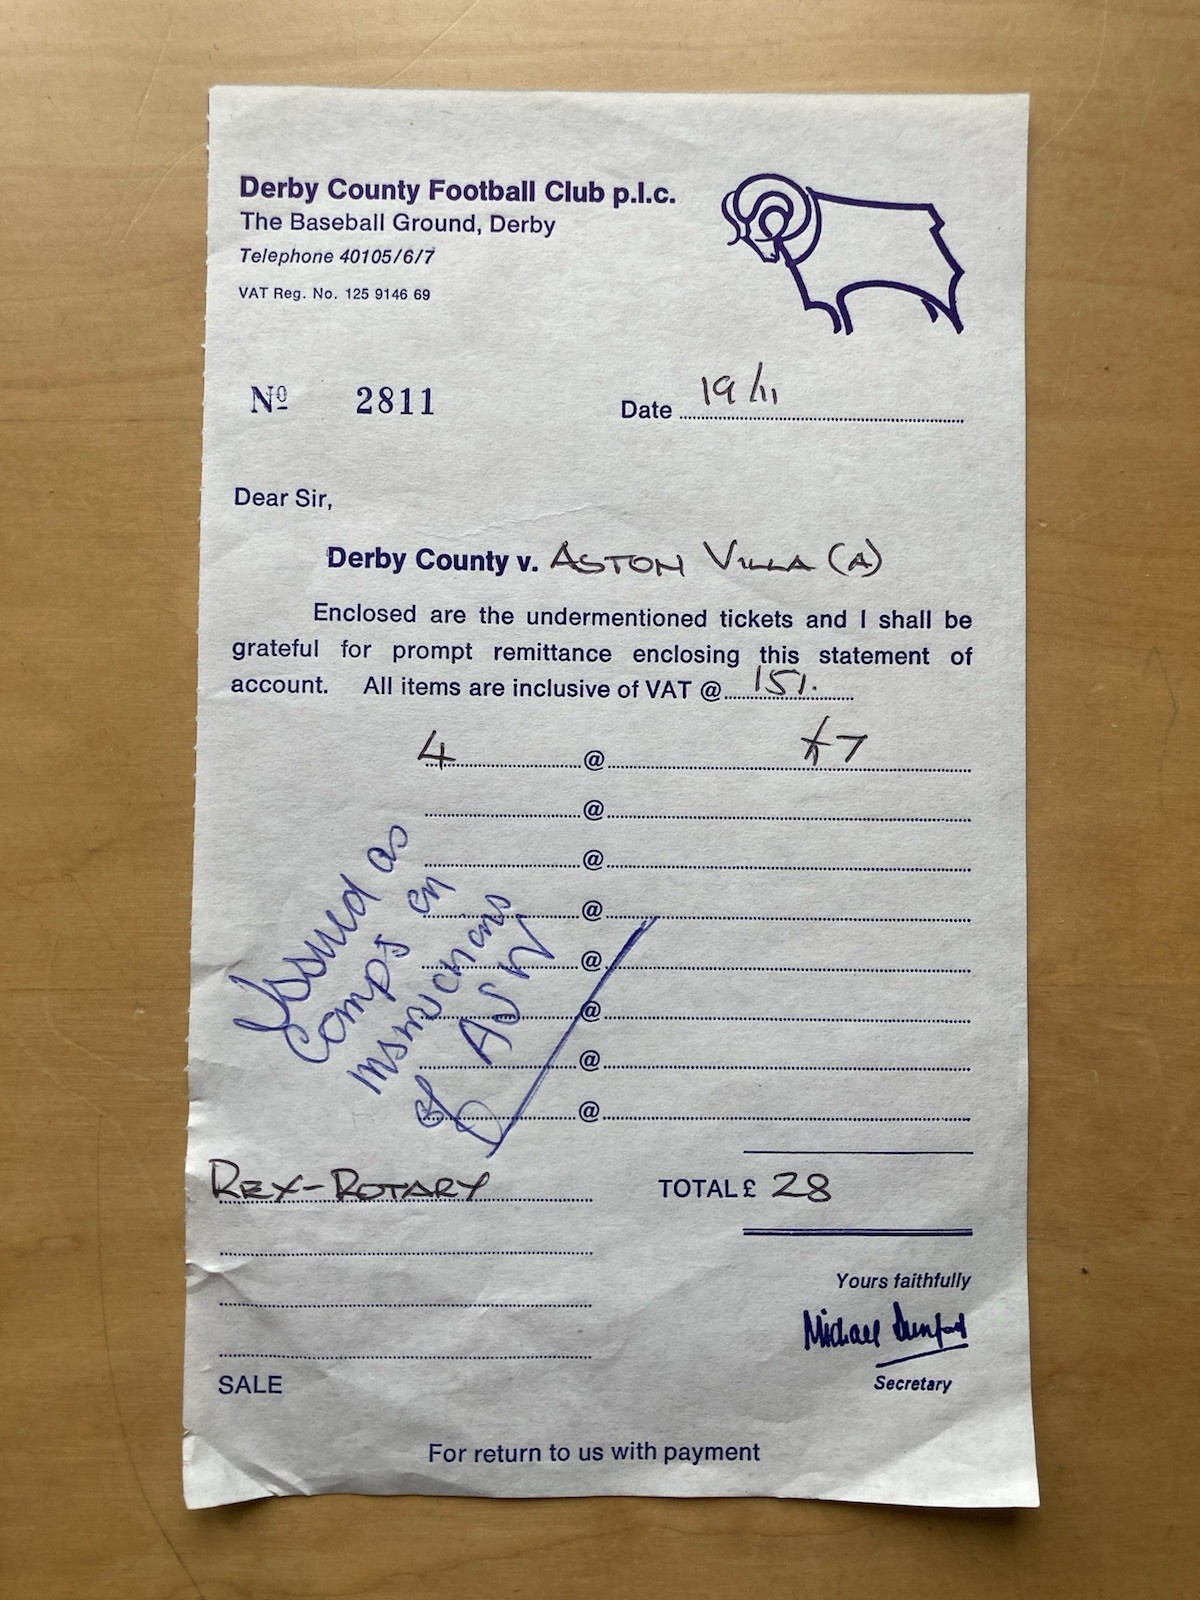 Derby County Football Club p.l.c.
The Baseball Ground, Derby
Telephone 40105/6/7
VAT Reg. No. 125 9146 69
Nº 2811
Date 19/11
Dear Sir,
Derby County v. ASTON VILLA (A)
Enclosed are the undermentioned tickets and I shall be
grateful for prompt remittance enclosing this statement of
account. All items are inclusive of VAT @ 15%.
4 @ £7
@
@
@
@
@
@
@
Issued as
comps on
instructions
of
REX-ROTARY
TOTAL £ 28
Yours faithfully
Michael Dunford
Secretary
SALE
For return to us with payment